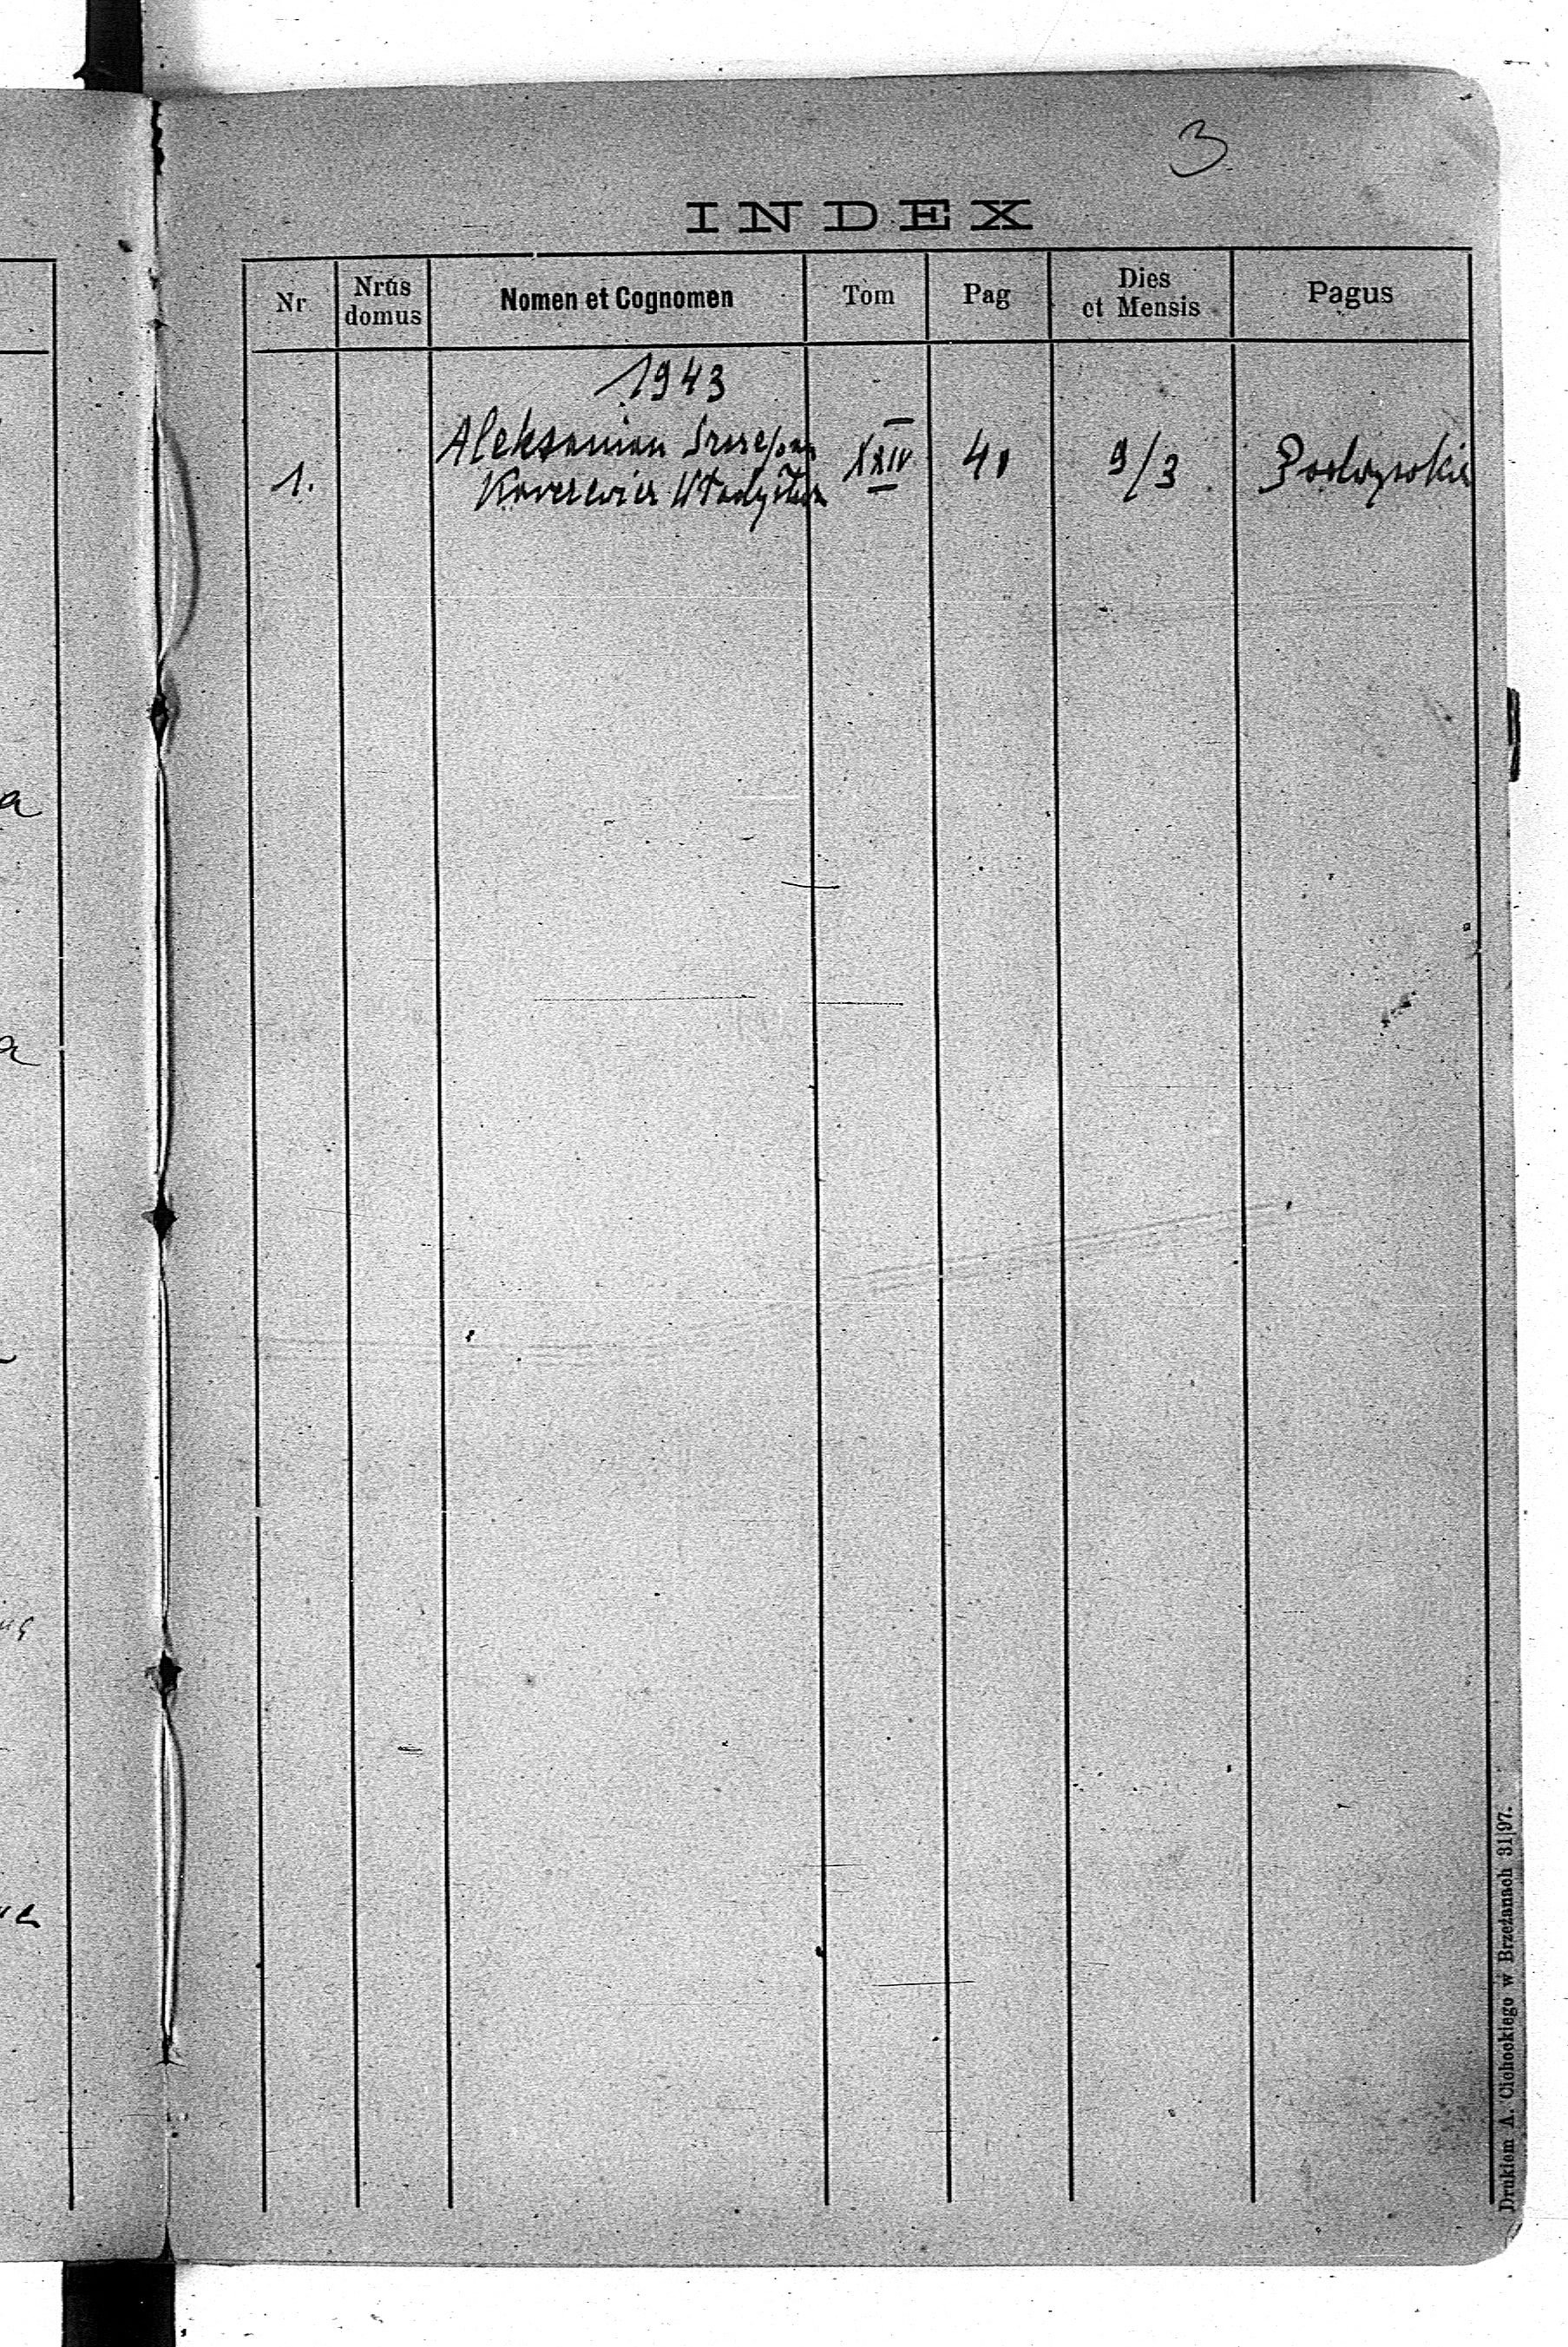 3
INDEX
Nr
Nrus domus
Nomen et Cognomen
Tom
Pag
Dies et Mensis
Pagus
1943
1.
Aleksanian Szczepan
Władysława
XXIV
41
9/3
Podwysokie
Drukiem A. Cichockiego w Brzeżanach 31|97.